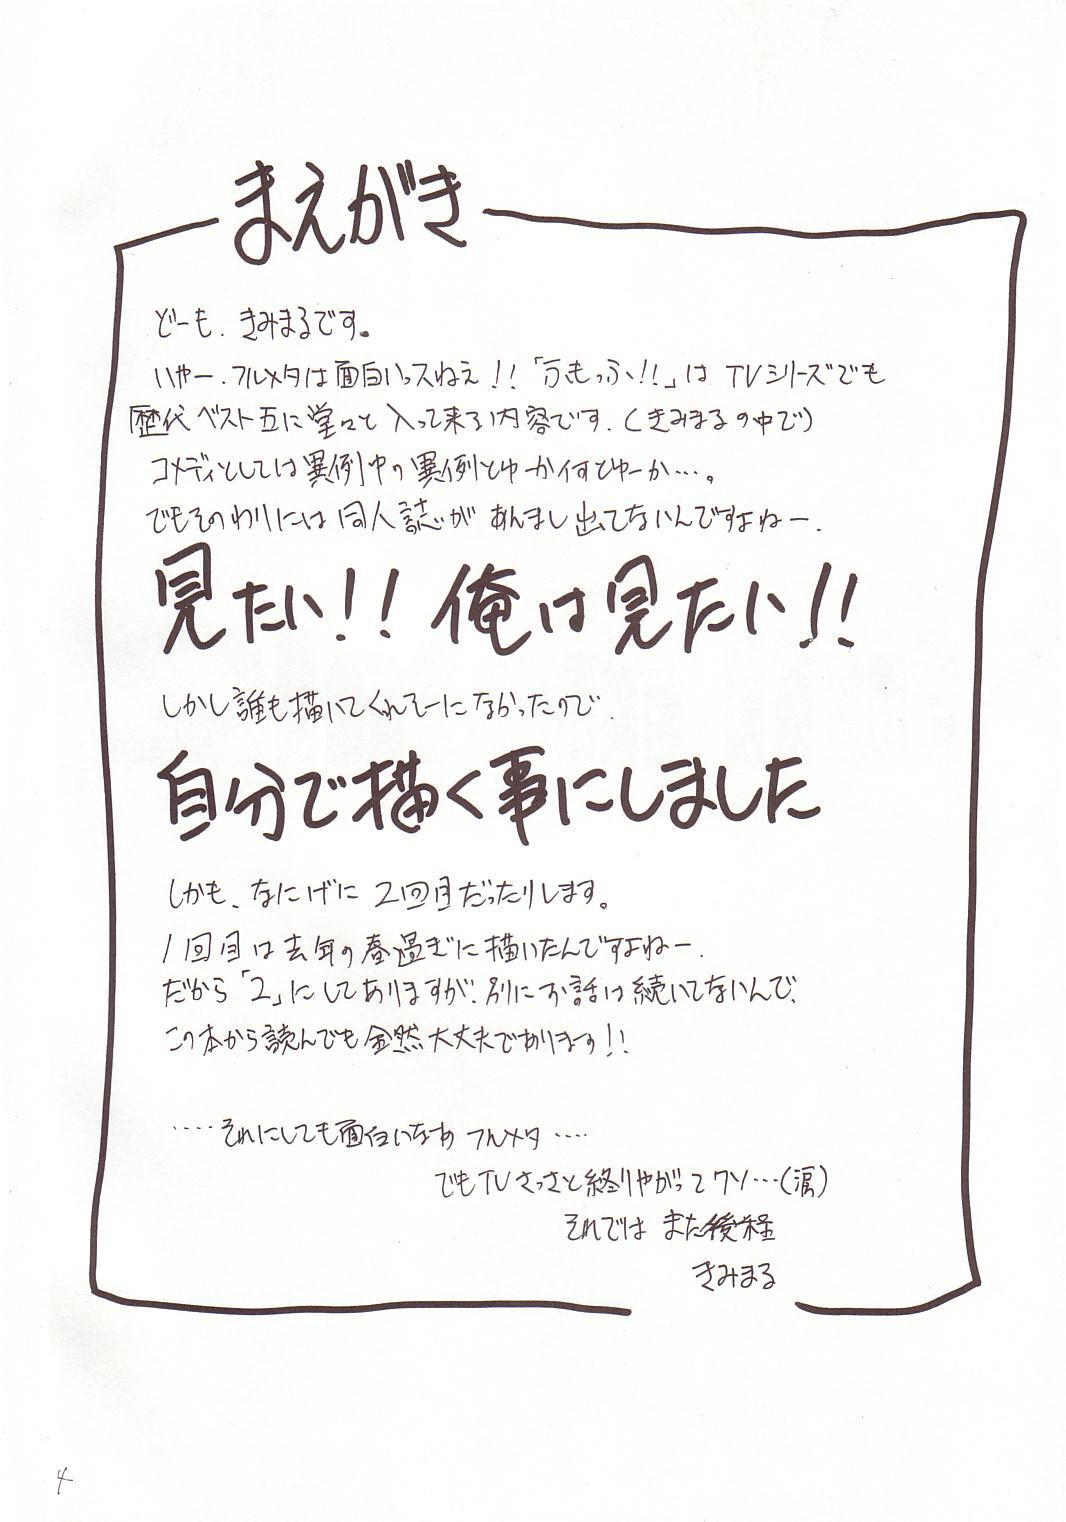 まえがき
どーも、きみまるです。
いやー、フルメタは面白いっスねえ!!「ふもっふ!!」は TVシリーズでも
歴代ベスト五に堂々と入って来る内容です。(きみまるの中で)
コメディとしては異例中の異例とゆーか何すとゆーか…。
でもそのわりには同人誌があんまし出てないんですよねー。
見たい!! 俺は見たい!!
しかし誰も描いてくれそーになかったので、
自分で描く事にしました
しかも、なにげに2回目だったりします。
1回目は去年の春過ぎに描いたんですよねー。
だから「2」にしてありますが、別にお話は続いてないんで、
この本から読んでも全然大丈夫であります!!
‥‥それにしても面白いなあ フルメタ‥‥
でもTVさっさと終りやがって クソ…(涙)
それでは また後程
きみまる
4